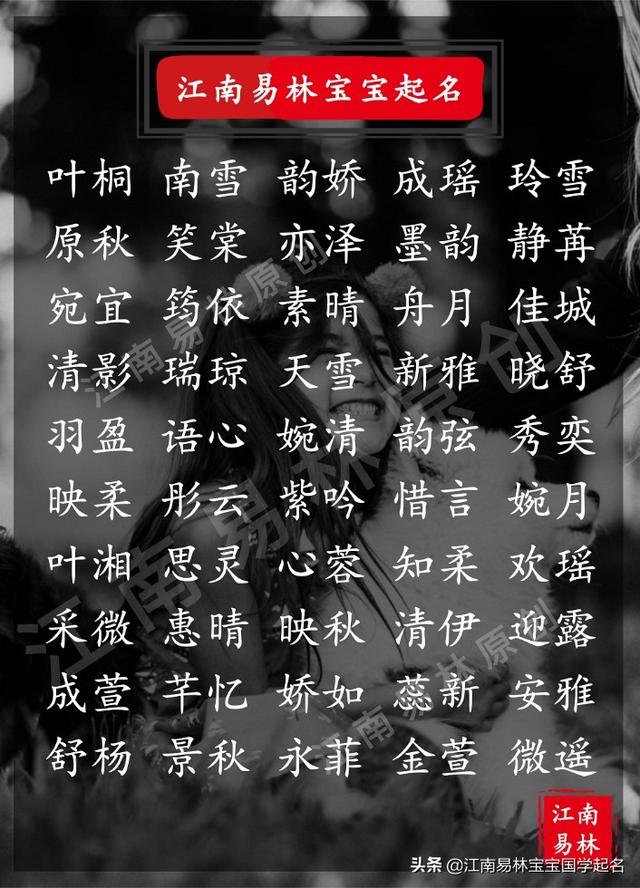 江南易林宝宝起名
叶桐 南雪 韵娇 成瑶 玲雪
原秋 笑棠 亦泽 墨韵 静苒
宛宜 筠依 素晴 舟月 佳城
清影 瑞琼 天雪 新雅 晓舒
羽盈 语心 婉清 韵弦 秀奕
映柔 彤云 紫吟 惜言 婉月
叶湘 思灵 心蓉 知柔 欢瑶
采微 惠晴 映秋 清伊 迎露
成萱 芊忆 娇如 蕊新 安雅
舒杨 景秋 永菲 金萱 微遥
江南易林原创
江南易林原创
江南易林原创
江南
易林
头条 @江南易林宝宝国学起名